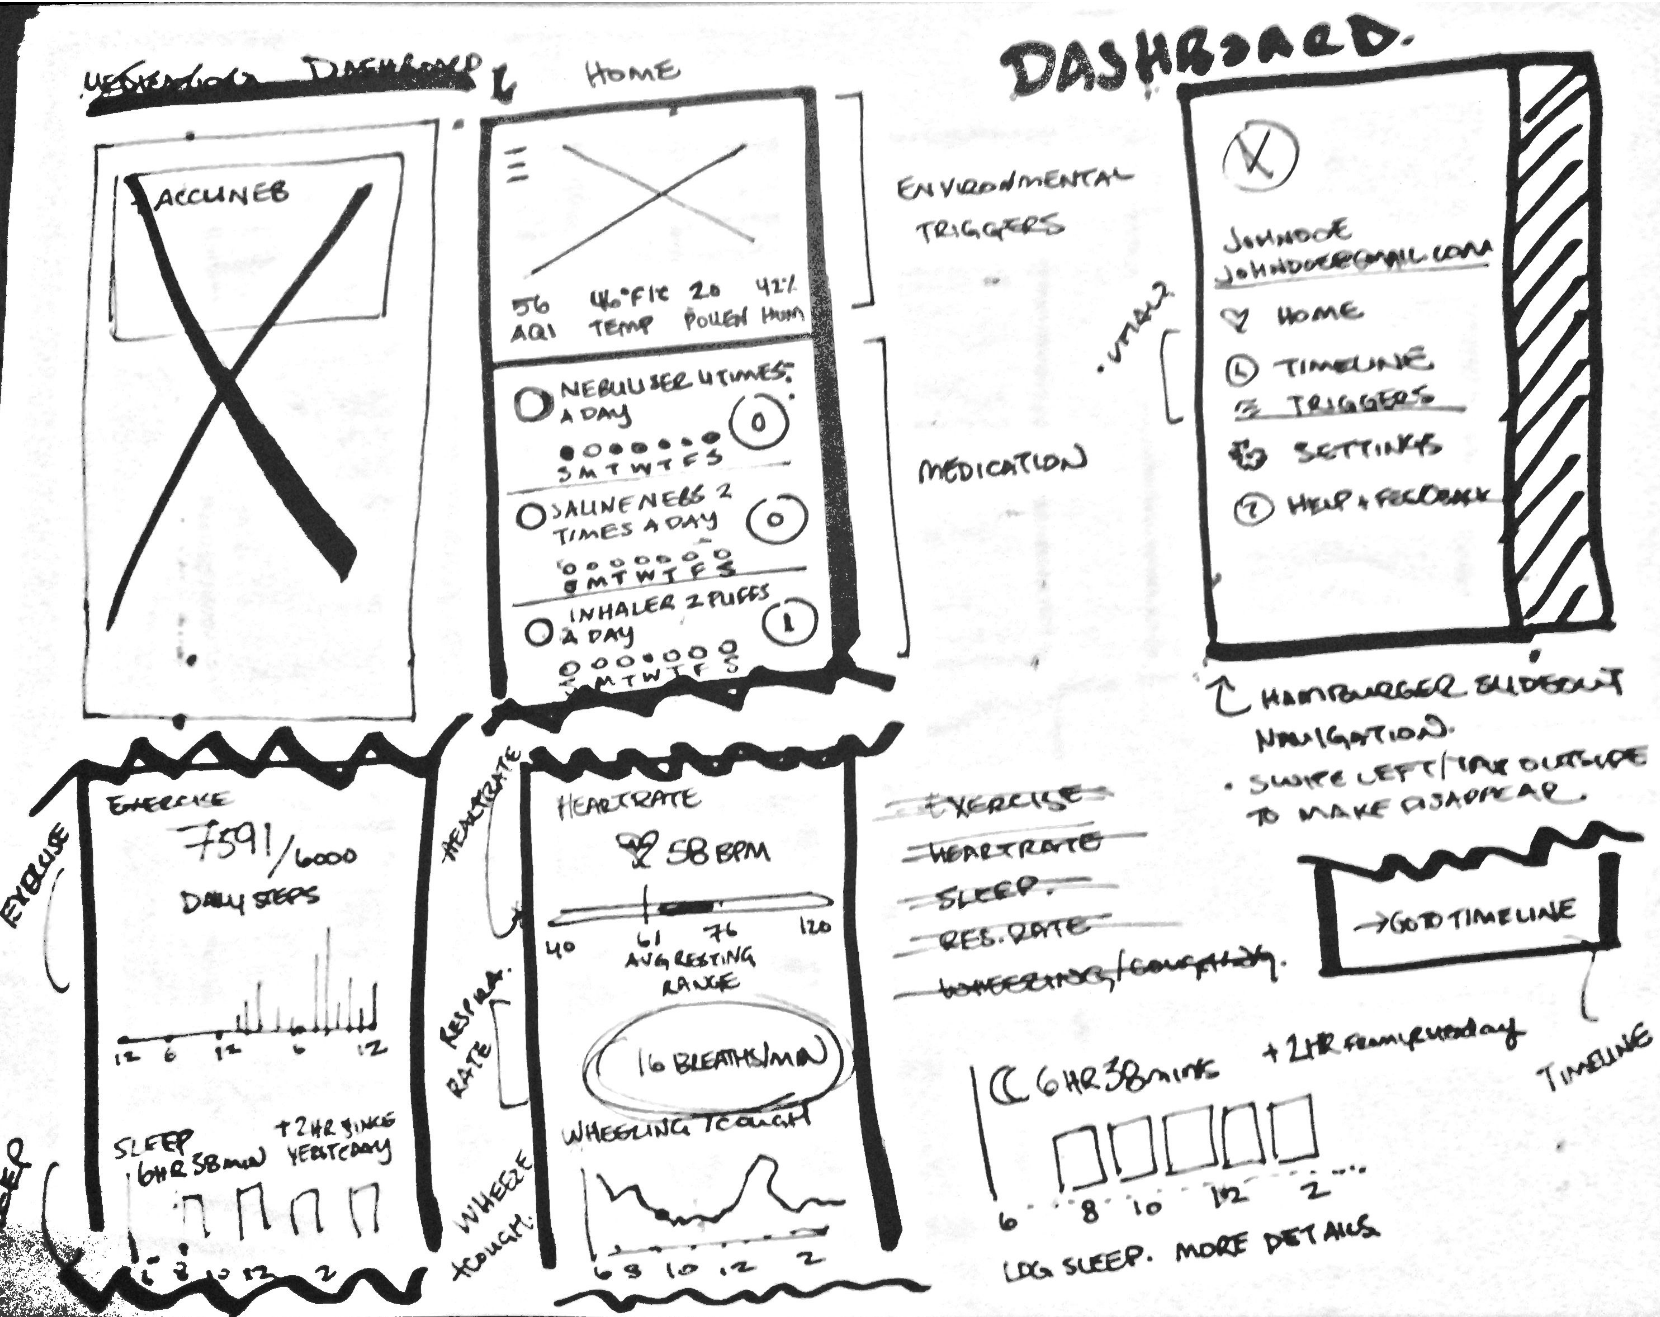 MEDICATIONS DASHBOARD
HOME
DASHBOARD.
ACCUNEB
56
46°F/C
20
42%
AQI
TEMP
POLLEN
HUM
ENVIRONMENTAL
TRIGGERS
NEBULISER 4 TIMES
A DAY
0
S M T W T F S
SALINE NEBS 2
TIMES A DAY
0
M T W T F S
INHALER 2 PUFFS
A DAY
1
M T W T F S
MEDICATION
JOHNDOE
JOHNDOE@GMAIL.COM
HOME
TIMELINE
TRIGGERS
SETTINGS
? HELP + FEEDBACK
HAMBURGER SLIDEOUT
NAVIGATION.
• SWIPE LEFT/TAP OUTSIDE
TO MAKE DISAPPEAR.
EXERCISE
EXERCISE
7591/6000
DAILY STEPS
12 6 12 6 12
SLEEP
6HR 38MIN
+2HR SINCE
YESTERDAY
6 8 10 12 2
HEARTRATE
HEARTRATE
58 BPM
40 61 76 120
AVG RESTING
RANGE
RESPIRA.
RATE
16 BREATHS/MIN
WHEEZING + COUGH
WHEEZE
+COUGH.
6 8 10 12 2
EXERCISE
HEARTRATE
SLEEP.
RES. RATE
WHEEZING/COUGHING.
→GO TO TIMELINE
TIMELINE
6HR 38mins +2HR from yesterday
6 8 10 12 2
LOG SLEEP. MORE DETAILS.